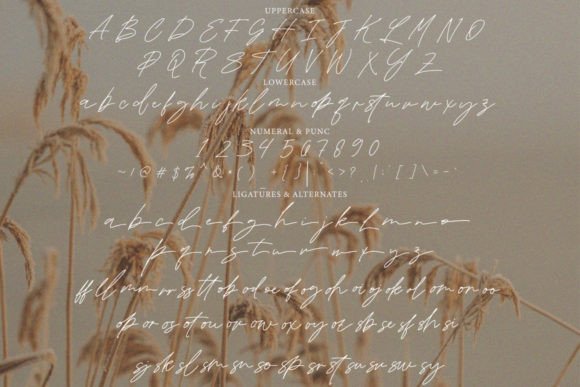 UPPERCASE
A B C D E F G H I J K L M N O
P Q R S T U V W X Y Z
LOWERCASE
a b c d e f g h i j k l m n o p q r s t u v w x y z
NUMERAL & PUNC
1 2 3 4 5 6 7 8 9 0
~ ! @ # $ % ^ & * ( ) + { } | < > ? , . : ' [ ] \ = - `
LIGATURES & ALTERNATES
a b c d e f g h i j k l m n o
p q r s t u v w x y z
ff ll mm rr ss tt ob od oe of og oh oi oj ok ol om on oo
op or os ot ou ov ow ox oy oz sb se sf sh si
sj sk sl sm sn so sp sr st su sv sw sy